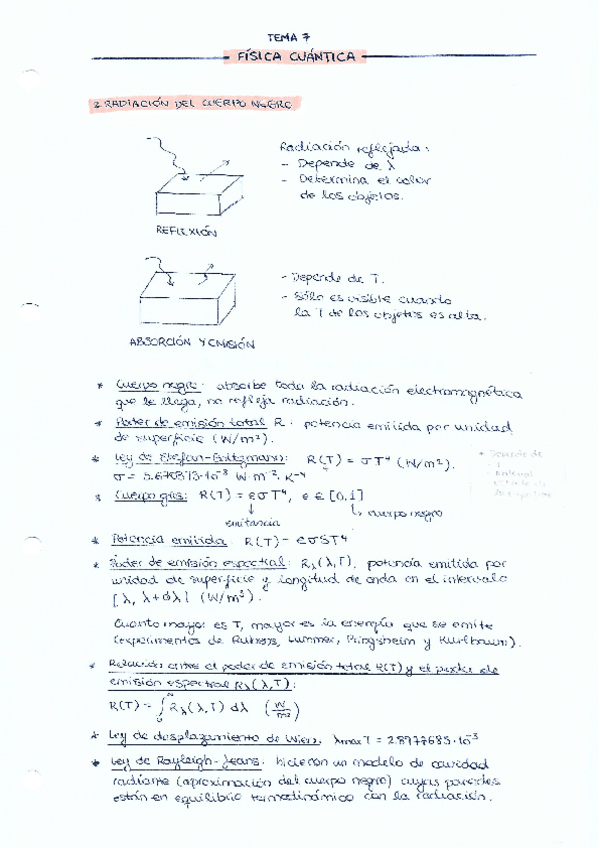 TEMA 7
FÍSICA CUÁNTICA
2. RADIACIÓN DEL CUERPO NEGRO
Radiación reflejada:
- Depende de λ
- Determina el color
de los objetos.
REFLEXIÓN
- Depende de T.
- Sólo es visible cuando
la T de los objetos es alta.
ABSORCIÓN Y EMISIÓN
* Cuerpo negro: absorbe toda la radiación electromagnética
que le llega, no refleja radiación.
* Poder de emisión total R: potencia emitida por unidad
de superficie (W/m²).
* Ley de Stefan-Boltzmann: R(T) = σT⁴ (W/m²).
σ = W·m⁻²·K⁻⁴
* Depende de
- T
* Cuerpo gris: R(T) = eσT⁴, e ∈ [0,1]
↓ ↳ cuerpo negro
emitancia
* Potencia emitida: R(T) = eσST⁴
* Poder de emisión espectral: Rλ(λ,T), potencia emitida por
unidad de superficie y longitud de onda en el intervalo
[λ, λ+dλ] (W/m³).
Cuanto mayor es T, mayor es la energía que se emite
(experimentos de Rubens, Lummer, Pringsheim y Kurlbaum).
* Relación entre el poder de emisión total R(T) y el poder de
emisión espectral Rλ(λ,T):
R(T) = ∫₀^∞ Rλ(λ,T) dλ (W/m²)
* Ley de desplazamiento de Wien: λmax T = 2.8977685·10⁻³
* Ley de Rayleigh-Jeans: hicieron un modelo de cavidad
radiante (aproximación del cuerpo negro) cuyas paredes
están en equilibrio termodinámico con la radiación.